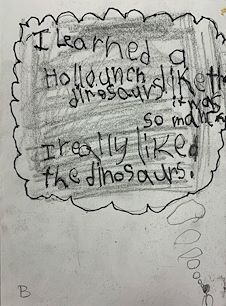 I learned a
Hollounch like th
dinosaurs. it was
so make
I really liked
the dinosaurs.
B